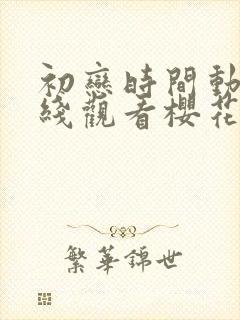 初戀時間動
綫觀看櫻花
繁華錦世